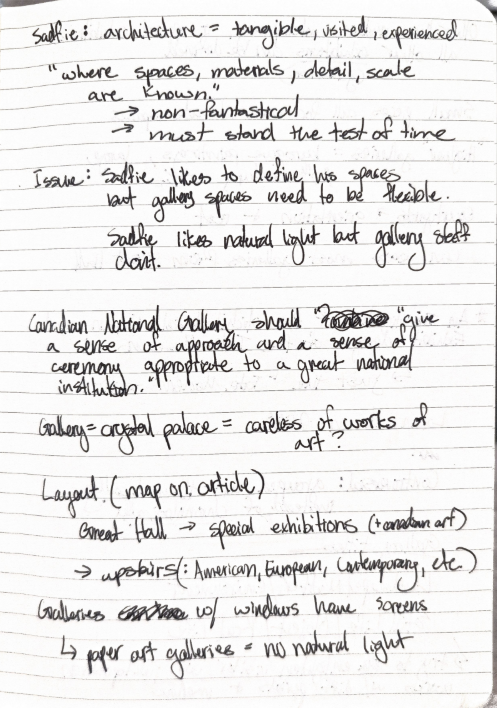 Sadfie: architecture = tangible, visited, experienced
"where spaces, materials, detail, scale
are known."
→ non-fantastical
→ must stand the test of time
Issue: Sadfie likes to define his spaces
but gallery spaces need to be flexible.
Sadfie likes natural light but gallery staff
don't.
Canadian National Gallery should "give
a sense of approach and a sense of
ceremony appropriate to a great national
institution."
Gallery = crystal palace = careless of works of
art?
Layout (map on article)
Great Hall → special exhibitions (+canadian art)
→ upstairs (: American, European, Contemporary, etc.)
Galleries w/ windows have screens
↳ paper art galleries = no natural light